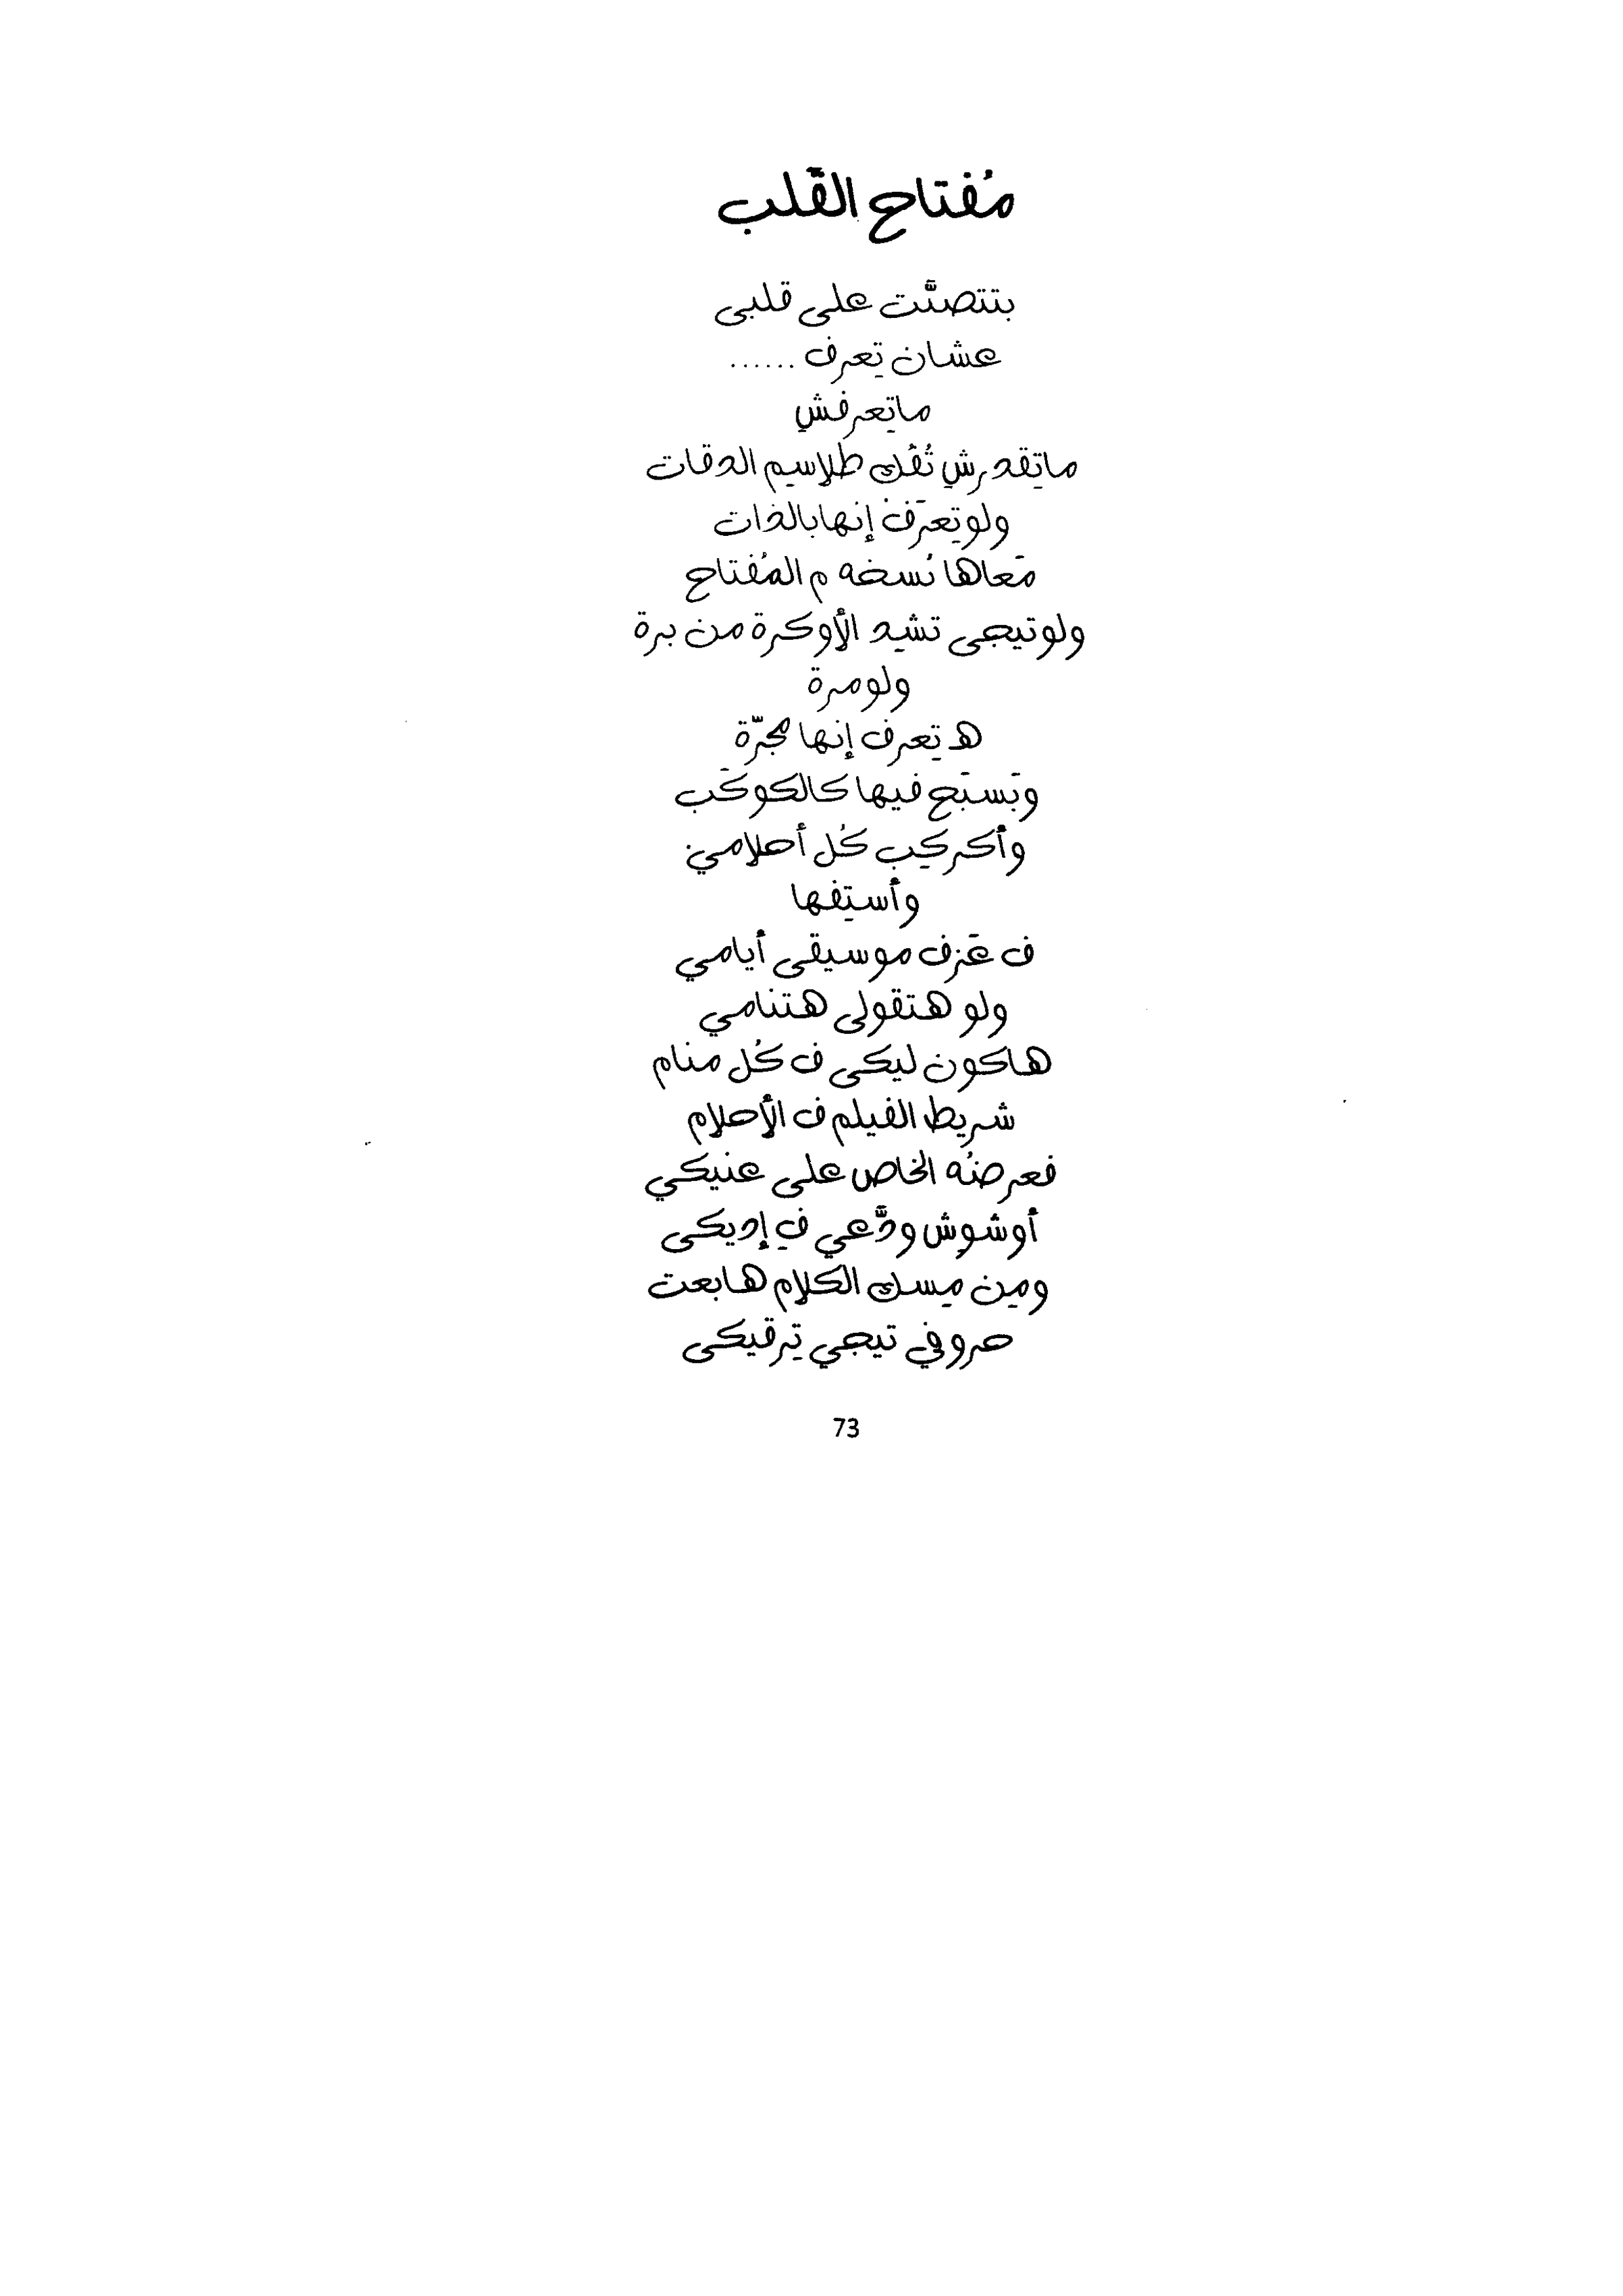 مُفتاح القَلب
بتتصنَّت على قلبى
عشان تِعرف ......
ماتِعرفشِ
ماتِقدرشِ تُفُك طلاسيم الدقات
ولو تِعرَف إنها بالذات
مَعاها نُسخه م المُفتاح
ولو تيجى تشِد الأوكرة من برة
ولو مرة
هـ تِعرف إنها مجَرّة
وبَتسبَح فيها كالكوكَب
وأكركِب كُل أحلامي
وأستِفها
ف عَزف موسيقى أيامي
ولو هتقولى هتنامي
هاكون ليكى ف كُل منام
شريط الفيلم ف الأحلام
فعرضُه الخاص على عنيكي
أوشوِش ودَّعي فِ إديكى
ومِن مِيسك الكلام هابعت
حروفي تيجي تِرقيكى
73